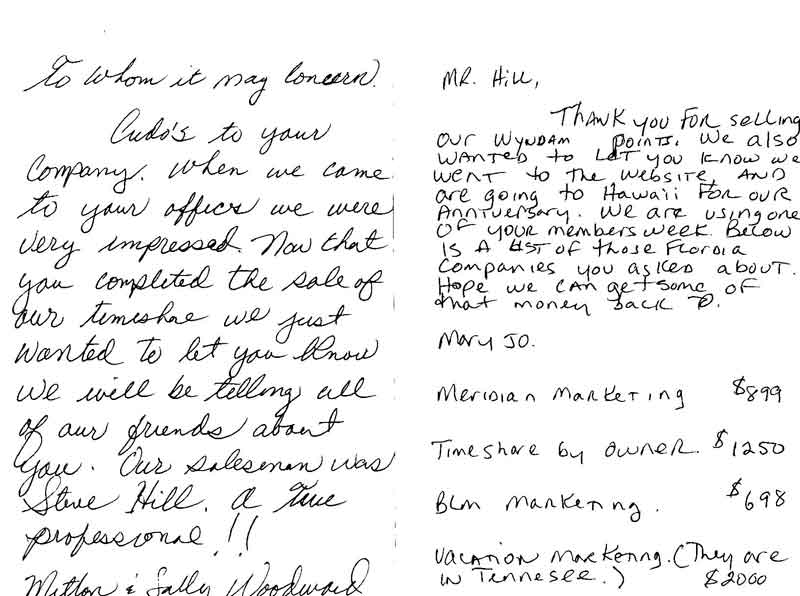 To Whom it may Concern.
Cudo's to your
Company. When we came
to your offices we were
very impressed. Now that
you completed the sale of
our timeshare we just
wanted to let you know
we will be telling all
of our friends about
you. Our salesman was
Steve Hill. A True
professional!!
Milton & Sally Woodward
MR. Hill,
THANK you FOR selling
our WYNDAM points. We also
WANTED to LET you know we
WENT to THE WEBSITE, AND
are going to Hawaii FOR OUR
Anniversary. We are using one
OF your members week. Below
IS A LIST of those Flordia
Companies you asked about.
Hope we can get some of
that money back
Mary JO.
Meridian Marketing $899
Timeshare by owner. $1250
BLM Marketing. $698
Vacation Marketing. (They are
in Tennesee.) $2000